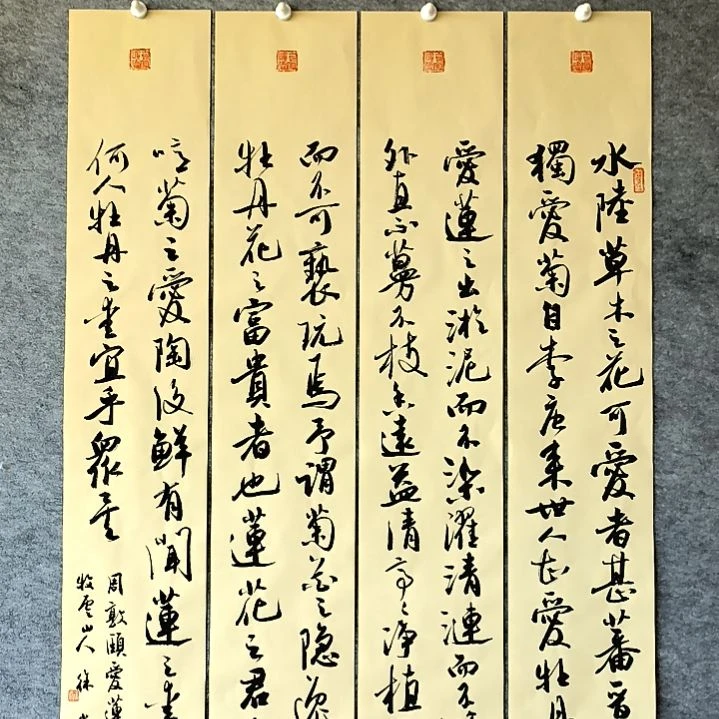 水陸草木之花可愛者甚蕃晋
獨愛菊自李唐来世人甚愛牡丹
愛蓮之出淤泥而不染濯清漣而不
外直不蔓不枝香遠益清亭々净植
而不可褻玩焉予謂菊花之隐逸
牡丹花之富貴者也蓮花之君
噫菊之愛陶後鮮有聞蓮之愛
何人牡丹之愛宜乎衆矣
周敦頤愛蓮
山人 徐